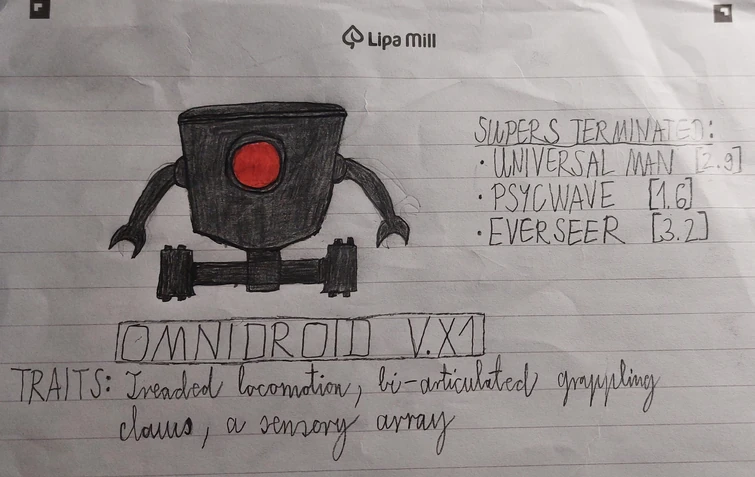 Lipa Mill
SUPERS TERMINATED:
• UNIVERSAL MAN [2.9]
• PSYCWAVE [1.6]
• EVERSEER [3.2]
OMNIDROID V.X1
TRAITS: Treaded locomotion, bi-articulated grappling
claws, a sensory array